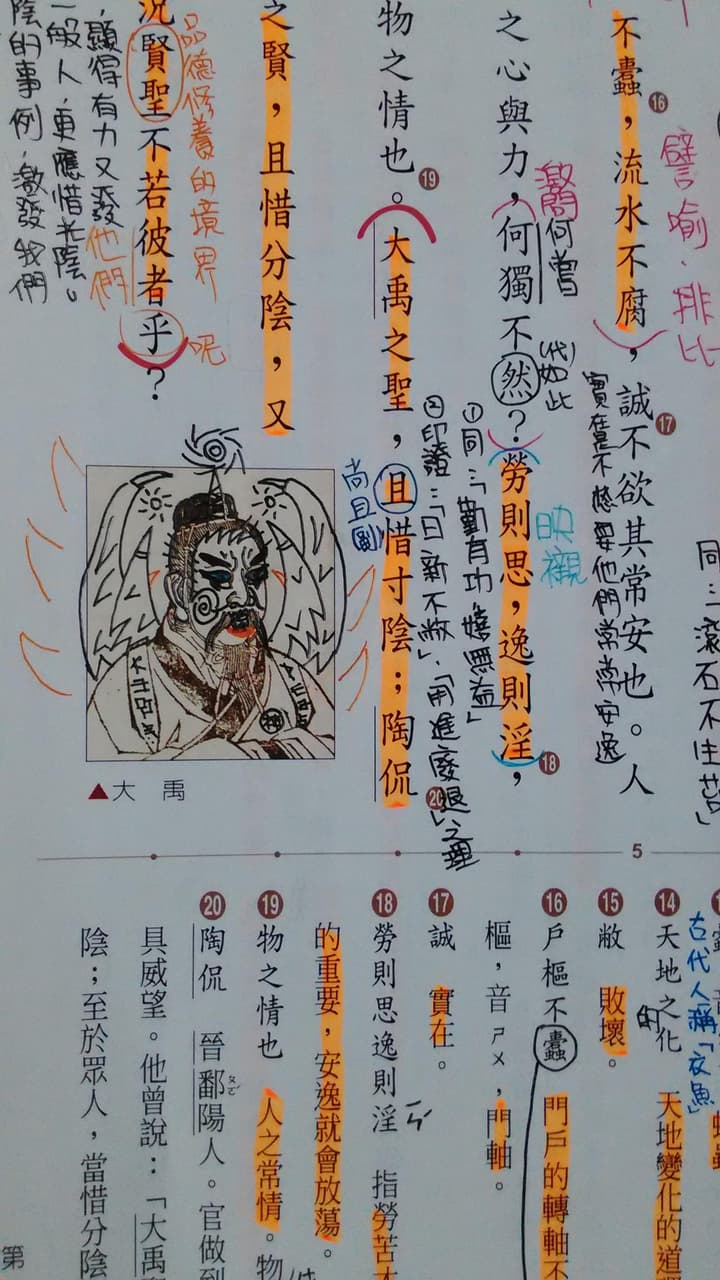 不蠹，流水不腐，誠不欲其常安也。人
之心與力，何獨不然？勞則思，逸則淫，
物之情也。大禹之聖，且惜寸陰；陶侃
之賢，且惜分陰，又
況賢聖不若彼者乎？
16
17
18
19
20
譬喻、排比
實在是不想要他們常常安逸
同：「滾石不生苔」
激問
何嘗
(代)如此
映襯
①同：「勤有功，嬉無益」
②印證：「日新不敝」、「用進廢退」之理
尚且
品德修養的境界
呢
他們
顯得有力又發
一般人，更應惜光陰。
陰的事例，激發我們
▲大 禹
5
古代人稱「衣魚」
14 天地之化 天地變化的道
的
15 敝 敗壞。
16 戶樞不蠹 門戶的轉軸不
樞，音ㄕㄨ，門軸。
17 誠 實在。
18 勞則思逸則淫 指勞苦才
ㄧㄣˊ
的重要，安逸就會放蕩。
19 物之情也 人之常情。物
20 陶侃 晉鄱陽人。官做到
具威望。他曾說：「大禹
陰；至於眾人，當惜分陰
第